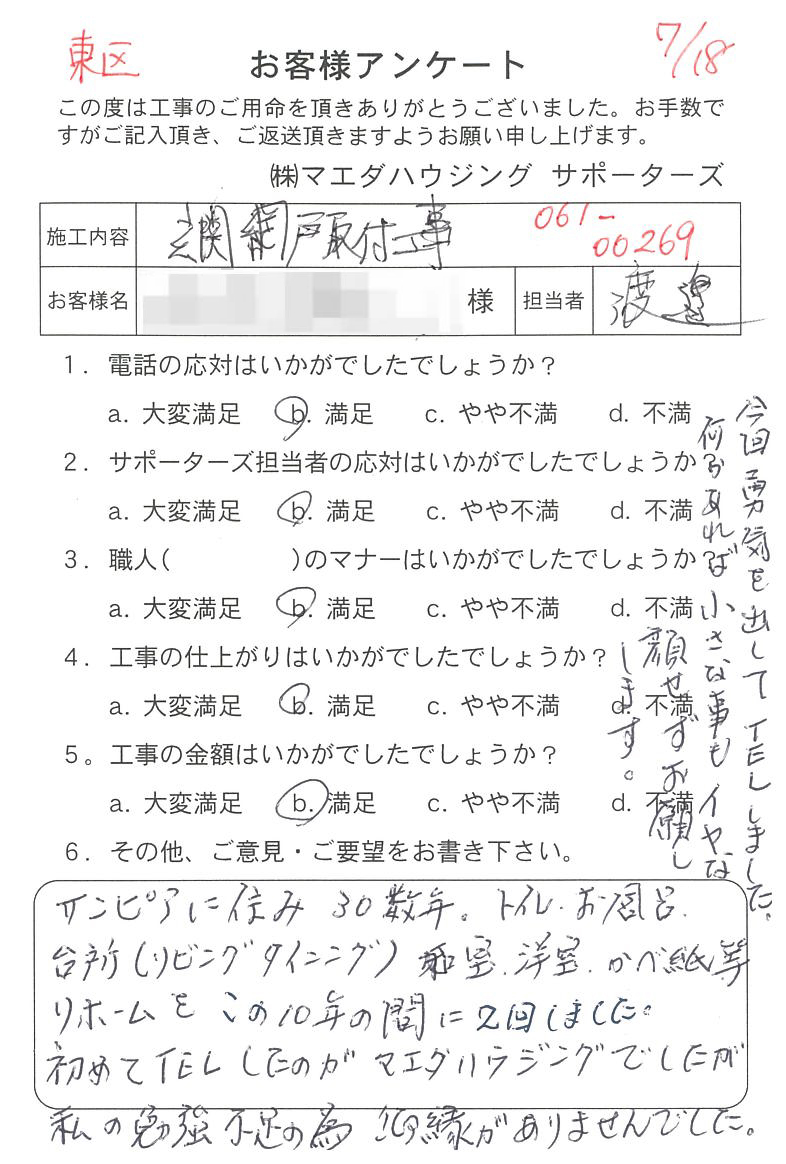 東区
7/18
お客様アンケート
この度は工事のご用命を頂きありがとうございました。お手数で
すがご記入頂き、ご返送頂きますようお願い申し上げます。
㈱マエダハウジング サポーターズ
施工内容 玄関網戸取付工事 061-00269
お客様名 様 担当者 渡邉
1. 電話の応対はいかがでしたでしょうか?
a. 大変満足 b. 満足 c. やや不満 d. 不満
2. サポーターズ担当者の応対はいかがでしたでしょうか?
a. 大変満足 b. 満足 c. やや不満 d. 不満
3. 職人( )のマナーはいかがでしたでしょうか?
a. 大変満足 b. 満足 c. やや不満 d. 不満
4. 工事の仕上がりはいかがでしたでしょうか?
a. 大変満足 b. 満足 c. やや不満 d. 不満
5。工事の金額はいかがでしたでしょうか?
a. 大変満足 b. 満足 c. やや不満 d. 不満
6. その他、ご意見・ご要望をお書き下さい。
サンピアに住み 30数年。トイレ.お風呂.
台所(リビングダイニング) 和室.洋室.かべ紙等
リホームを この10年の間に2回しました。
初めてTELしたのがマエダハウジングでしたが
私の勉強不足の為 御縁がありませんでした。
今回勇気を出してTELしました。
何かあれば小さな事もイヤな
顔せずお願し
します。